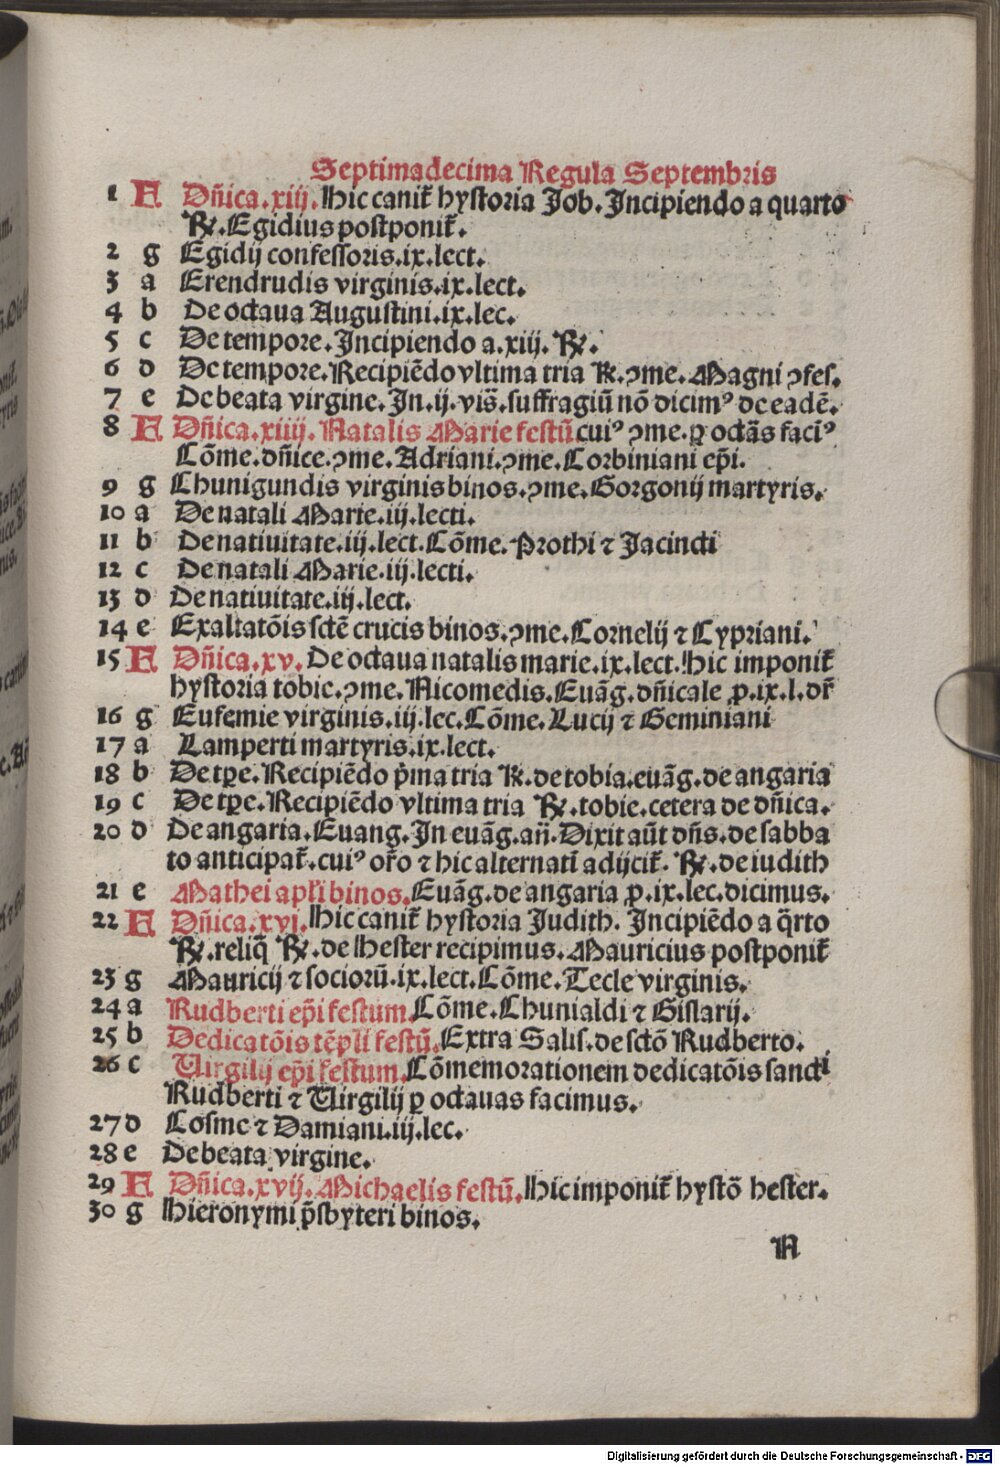 Septimadecima Regula Septembris
1 F Dn̄ica.xiij.Hic canit᷑ hystoria Job.Incipiendo a quarto
℟.Egidius postponit᷑.
2 g Egidij confessoris.ix.lect.
3 a Erendrudis virginis.ix.lect.
4 b De octaua Augustini.ix.lec.
5 c De tempore.Incipiendo a.xiij.℟.
6 d De tempore.Recipiēdo vltima tria ℟.ↄme.Magni ↄfes.
7 e De beata virgine.In.ij.vis̄.suffragiū nō dicimꝰ de eadē.
8 F Dn̄ica.xiiij.Natalis Marie festū.cuiꝰ ↄme.ꝑ octās faciꝰ
Cōme.dn̄ice.ↄme.Adriani.ↄme.Corbiniani ep̄i.
9 g Chunigundis virginis binos.ↄme.Gorgonij martyris.
10 a De natali Marie.iij.lecti.
11 b De natiuitate.iij.lect.Cōme.Prothi ⁊ Jacincti
12 c De natali Marie.iij.lecti.
13 d De natiuitate.iij.lect.
14 e Exaltatōis sctē crucis binos.ↄme.Cornelij ⁊ Cypriani.
15 F Dn̄ica.xv.De octaua natalis marie.ix.lect.Hic imponit᷑
hystoria tobie.ↄme.Nicomedis.Euāg.dn̄icale ꝓ.ix.l.dr̄
16 g Eufemie virginis.iij.lec.Cōme.Lucij ⁊ Geminiani
17 a Lamperti martyris.ix.lect.
18 b De tꝑe.Recipiēdo p̄ma tria ℟.de tobia.euāg.de angaria
19 c De tꝑe.Recipiēdo vltima tria ℟.tobie.cetera de dn̄ica.
20 d De angaria.Euang.In euāg.an̄.Dixit aūt dn̄s.de sabba
to anticipat᷑.cuiꝰ or̄o ⁊ hic alternatī adijcit᷑.℟.de iudith
21 e Mathei apl̄i binos.Euāg.de angaria ꝓ.ix.lec.dicimus.
22 F Dn̄ica.xvj.Hic canit᷑ hystoria Judith.Incipiēdo a q̄rto
℟.reliq̄ ℟.de Hester recipimus.Mauricius postponit᷑
23 g Mauricij ⁊ sociorū.ix.lect.Cōme.Tecle virginis.
24 a Rudberti ep̄i festum.Cōme.Chunialdi ⁊ Gislarij.
25 b Dedicatōis tēpli festū.Extra Salis.de sctō Rudberto.
26 c Virgilij ep̄i festum.Cōmemorationem dedicatōis sancti
Rudberti ⁊ Virgilij ꝑ octauas facimus.
27 d Cosme ⁊ Damiani.iij.lec.
28 e De beata virgine.
29 F Dn̄ica.xvij.Michaelis festū.Hic imponit᷑ hystō hester.
30 g Hieronymi p̄sbyteri binos.
A
Digitalisierung gefördert durch die Deutsche Forschungsgemeinschaft - DFG